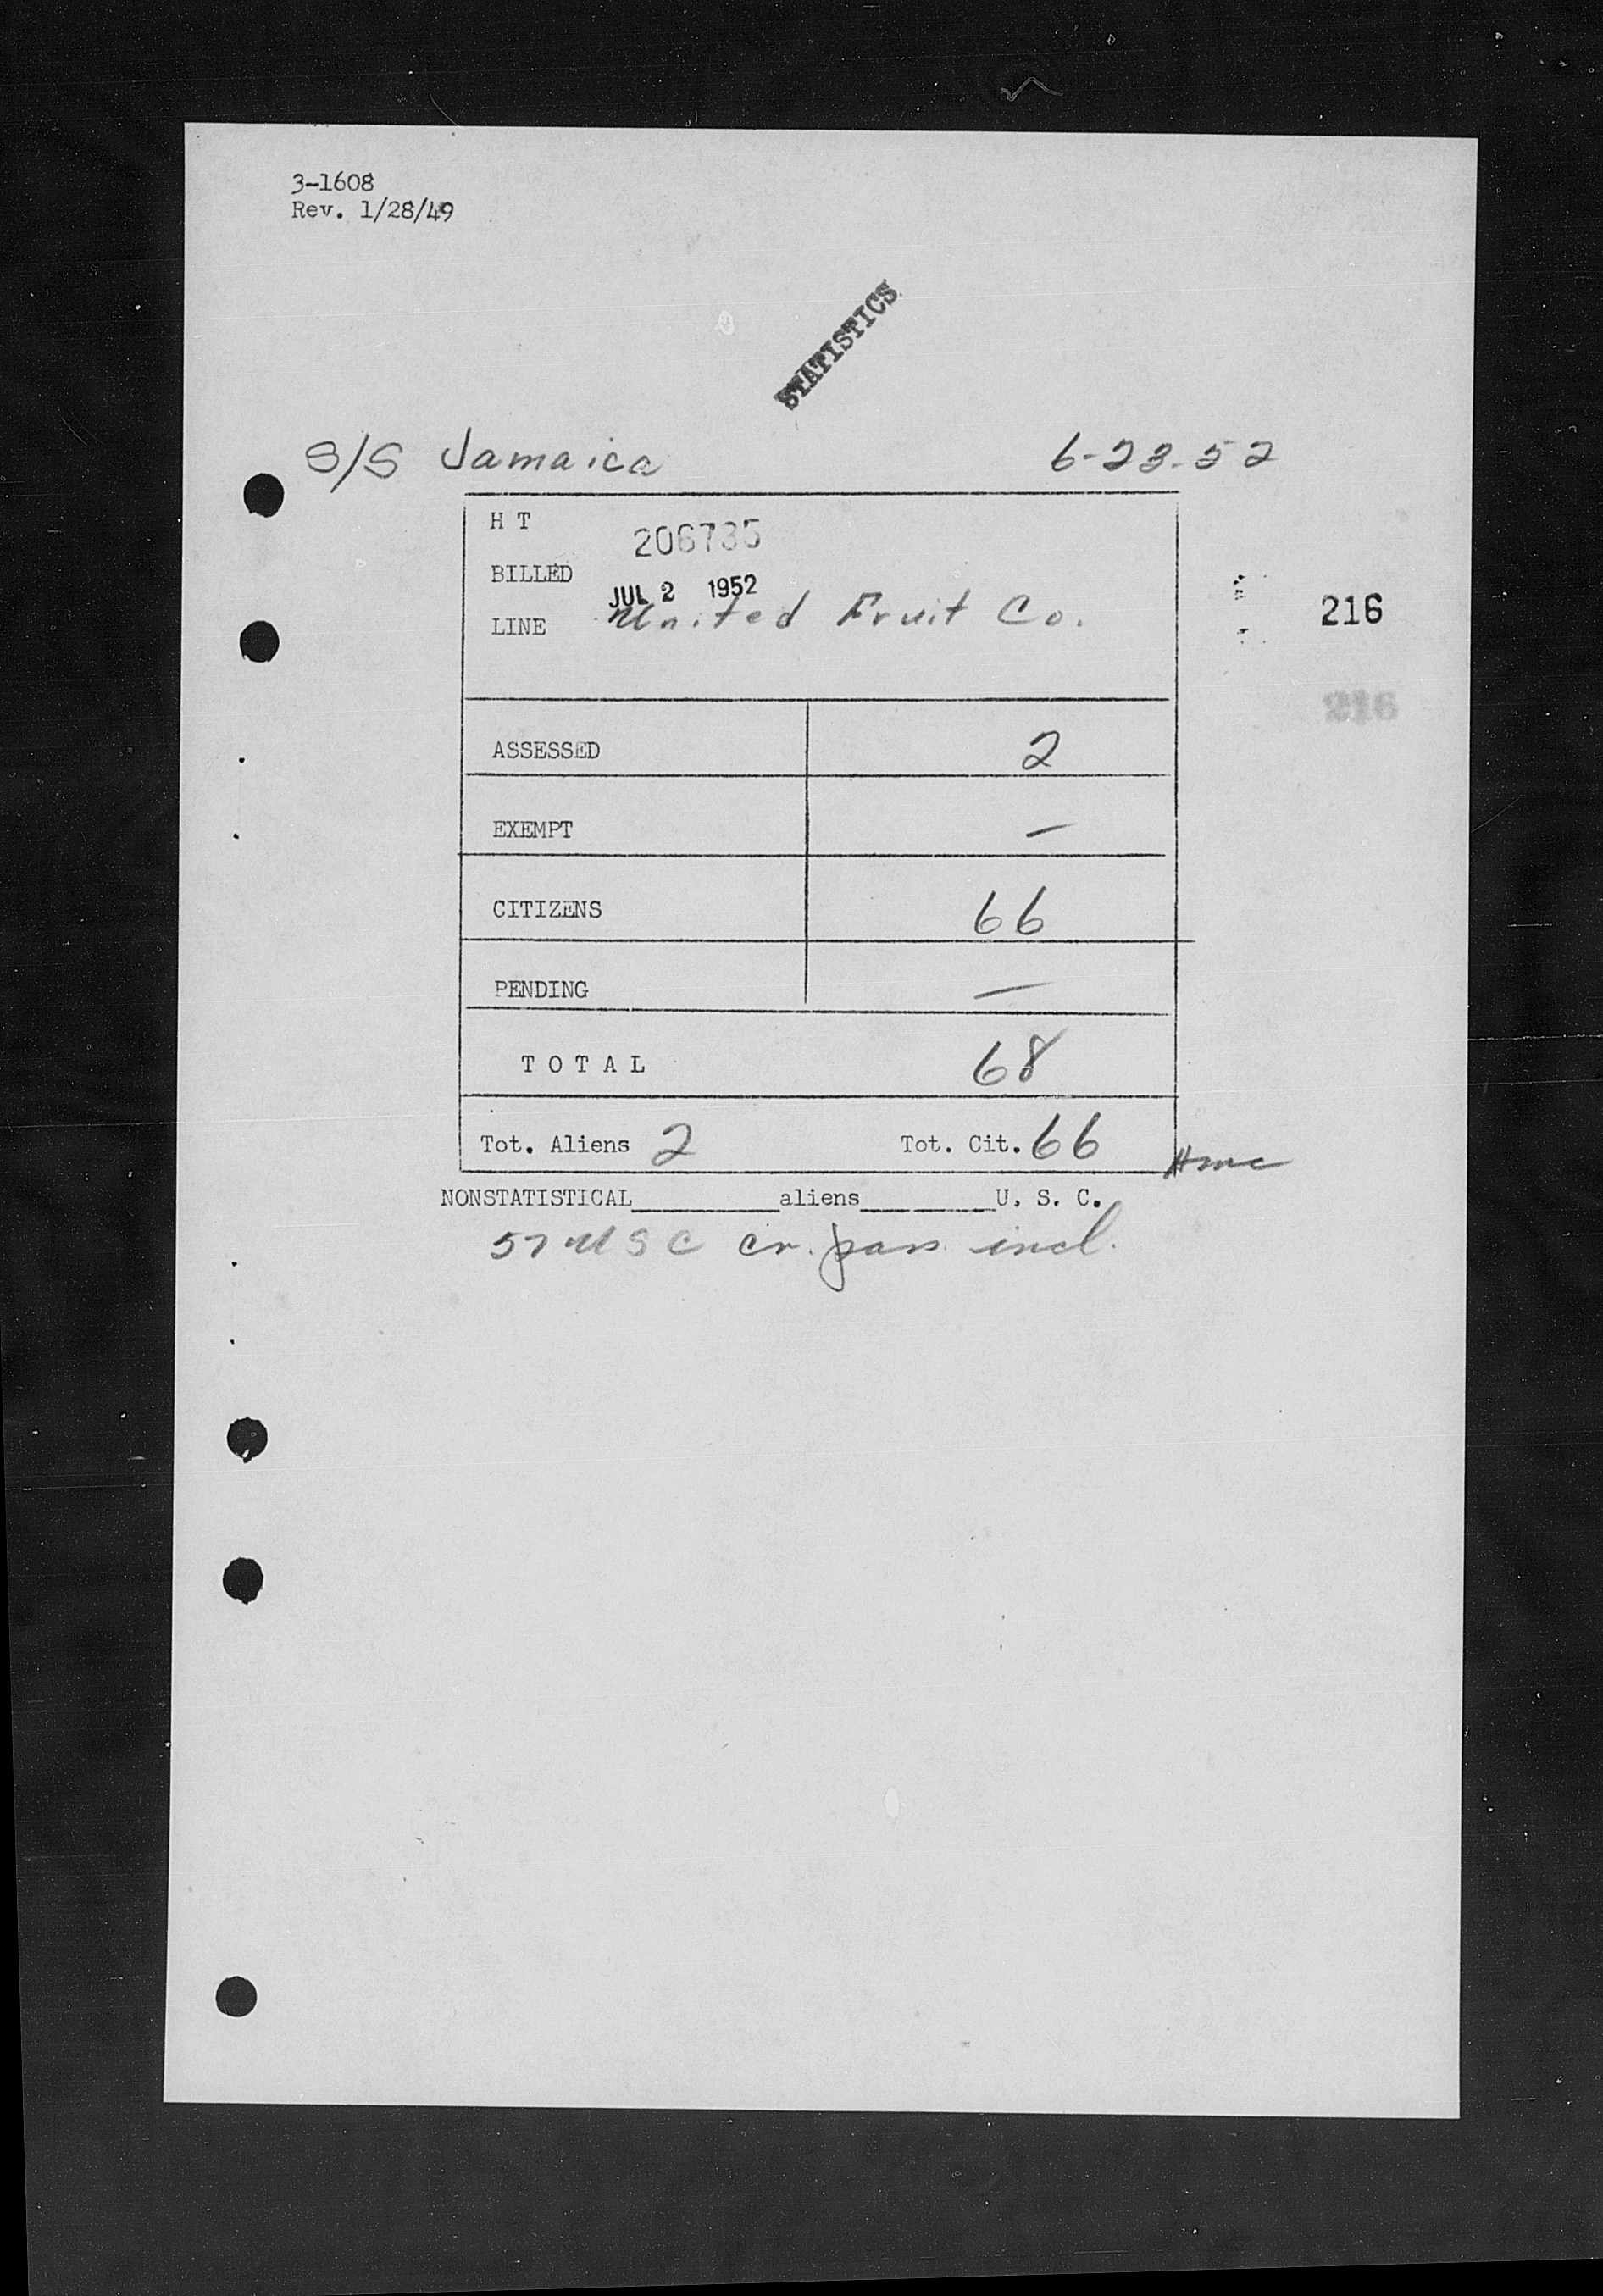 3-1608
Rev. 1/28/49
STATISTICS
S/S Jamaica 6-23-52
H T 206735
BILLED JUL 2 1952
LINE United Fruit Co.
216
216
ASSESSED 2
EXEMPT —
CITIZENS 66
PENDING —
T O T A L 68
Tot. Aliens 2 Tot. Cit. 66
NONSTATISTICAL________aliens________U. S. C.
57 USC cr. pass. incl.